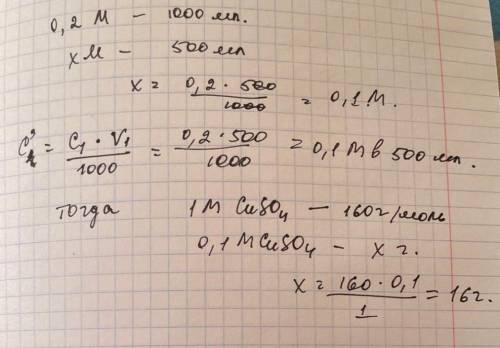 0,2 М — 1000 мл.
х М — 500 мл
х = 0,2 · 500 / 1000 = 0,1 М.
= C₁ · V₁ / 1000 = 0,2 · 500 / 1000 = 0,1 М в 500 мл.
тогда 1 М CuSO₄ — 160 г/моль
0,1 М CuSO₄ — х г.
х = 160 · 0,1 / 1 = 16 г.